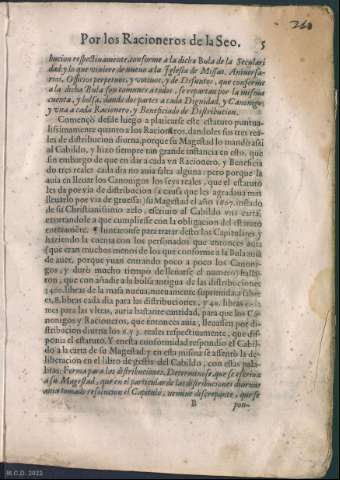 260
Por los Racioneros de la Seo. 5
bucion respectiuamente, conforme a la dicha Bula de la Seculari
dad, y lo que viniere de nueuo a la Iglesia de Missas, Aniuersa-
rios, Officios perpetuos, y votiuos, y de Difuntos, que conforme
a la dicha Bula son comunes a todos, se repartan por la misma
cuenta, y bolsa, dando dos partes a cada Dignidad, y Canonigo,
y vna a cada Racionero, y Beneficiado de Distribucion.
Començò desde luego a platicarse este estatuto puntua-
lissimamente quanto a los Racioneros, dandoles sus tres rea-
les de distribucion diurna, porque su Magestad lo mandò assi
al Cabildo, y hizo siempre tan grande instancia en esto, que
sin embargo de que en dar a cada vn Racionero, y Beneficia
do tres reales cada dia no auia falta alguna: pero porque la
auia en lleuar los Canonigos los seys reales, que el estatuto
les da por via de distribucion (a causa que les agradaua mas
lleuarlo por via de gruessa) su Magestad el año 1607. instado
de su Christianissimo zelo, escriuio al Cabildo vna carta,
exortandole a que cumpliesse con la obligacion del estatuto
enteramẽte. Y iuntaronse para tratar desto los Capitulares, y
haziendo la cuenta con los personados que entonces auia
(que eran muchos menos de los que conforme a la Bula auia
de auer, porque yuan entrando poco a poco los Canoni-
gos, y durò mucho tiempo de llenarse el numero) halla-
ron, que con añadir a la bolsa antigua de las distribuciones
3400. libras de la masa nueua, nueuamente suprimida, a saber
es, 8. libras cada dia para las distribuciones, y 40. libras cada
mes para las vltras, auria bastante cantidad, para que los Ca-
nonigos y Racioneros, que entonces auia, lleuassen por dis-
tribucion diurna los 6. y 3. reales respectiuamente, que dis-
ponia el estatuto. Y en esta conformidad respondio el Cabil-
do a la carta de su Magestad: y en essa misma se assentò la de-
liberacion en el libro de gestis del Cabildo, con estas pala-
bras: Forma para las distribuciones. Determinose, que se escriua
a su Magestad, que en el particular de las distribuciones diurnas
auia tomado resolucion el Capitulo, nemine discrepante, que se
B pon-
M.C.D. 2022